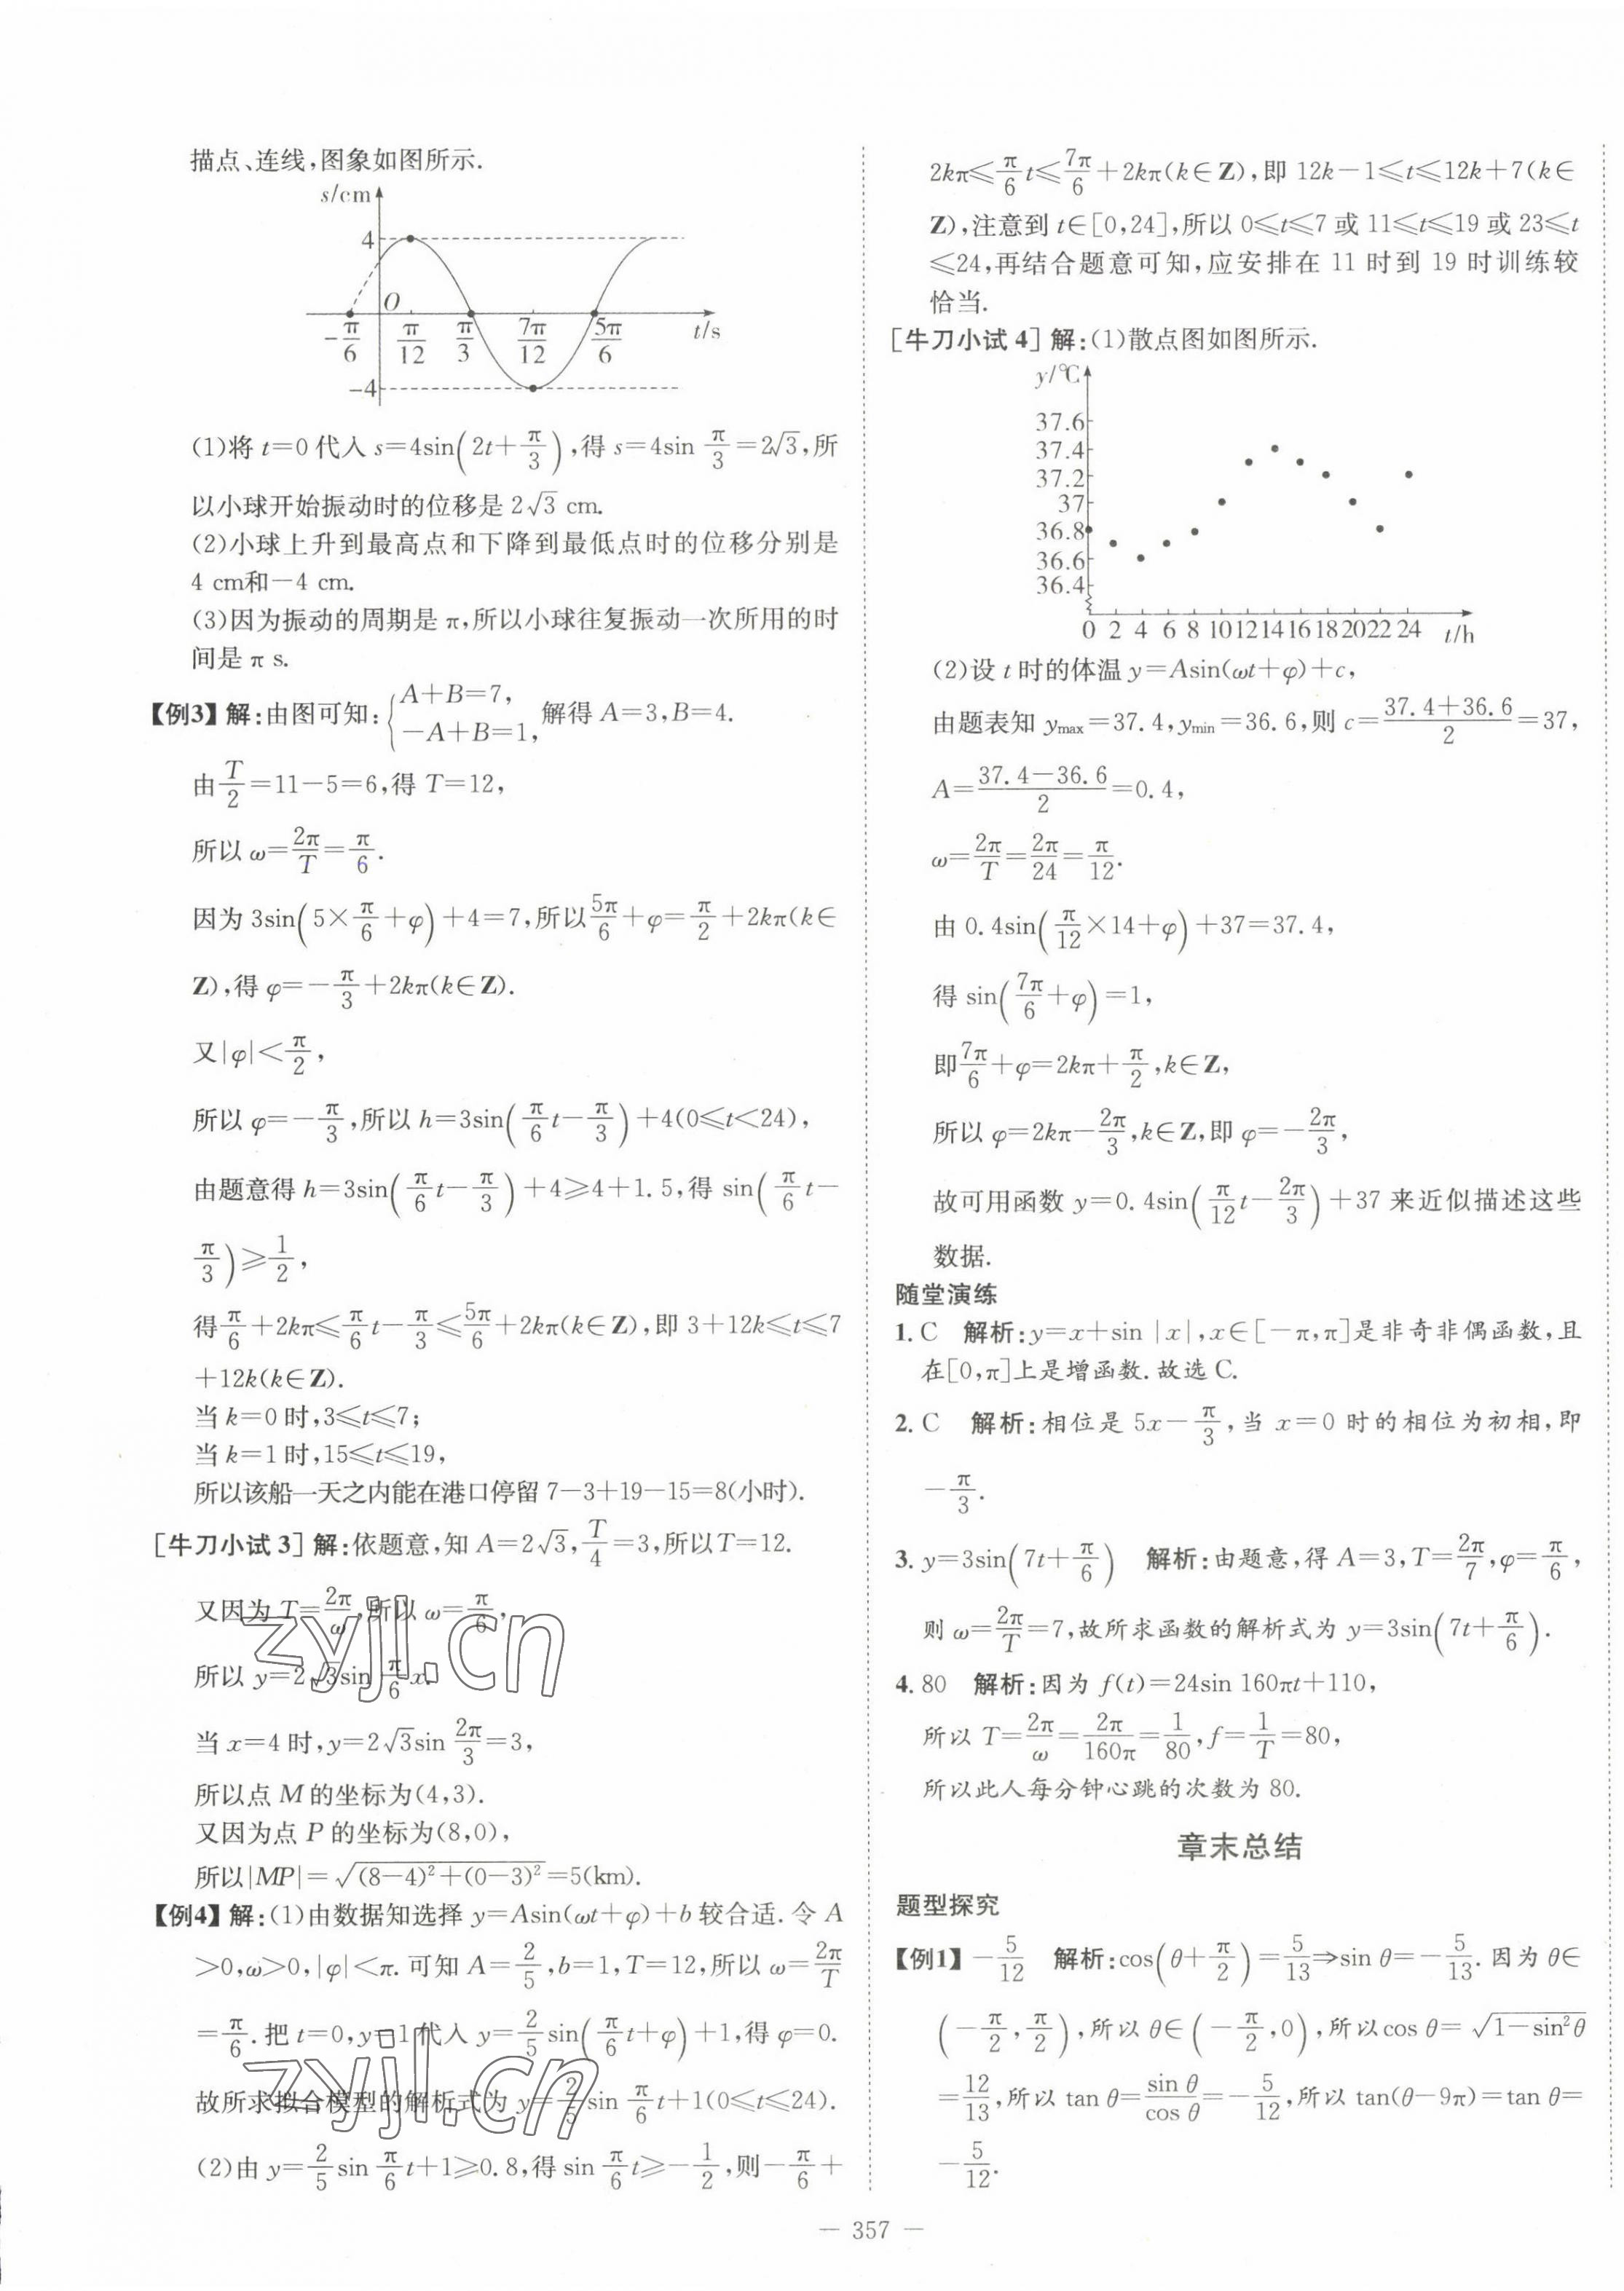 描点、连线,图象如图所示.
s/cm
4
O
-π/6 π/12 π/3 7π/12 5π/6 t/s
-4
(1)将 t=0 代入 s=4sin(2t+π/3),得 s=4sin π/3=2√3,所
以小球开始振动时的位移是 2√3 cm.
(2)小球上升到最高点和下降到最低点时的位移分别是
4 cm和-4 cm.
(3)因为振动的周期是 π,所以小球往复振动一次所用的时
间是 π s.
【例3】解:由图可知:{A+B=7, -A+B=1, 解得 A=3,B=4.
由T/2=11-5=6,得 T=12,
所以 ω=2π/T=π/6.
因为 3sin(5×π/6+φ)+4=7,所以5π/6+φ=π/2+2kπ(k∈
Z),得 φ=-π/3+2kπ(k∈Z).
又|φ|<π/2,
所以 φ=-π/3,所以 h=3sin(π/6 t-π/3)+4(0≤t<24),
由题意得 h=3sin(π/6 t-π/3)+4≥4+1.5,得 sin(π/6 t-
π/3)≥1/2,
得π/6+2kπ≤π/6 t-π/3≤5π/6+2kπ(k∈Z),即 3+12k≤t≤7
+12k(k∈Z).
当 k=0 时,3≤t≤7;
当 k=1 时,15≤t≤19,
所以该船一天之内能在港口停留 7-3+19-15=8(小时).
[牛刀小试 3] 解:依题意,知 A=2√3,T/4=3,所以T=12.
又因为 T=2π/ω,所以 ω=π/6,
所以 y=2√3sin π/6 x.
当 x=4 时,y=2√3sin 2π/3=3,
所以点 M 的坐标为(4,3).
又因为点 P 的坐标为(8,0),
所以|MP|=√((8-4)²+(0-3)²)=5(km).
【例4】解:(1)由数据知选择 y=Asin(ωt+φ)+b 较合适.令 A
>0,ω>0,|φ|<π.可知 A=2/5,b=1,T=12,所以 ω=2π/T
=π/6.把 t=0,y=1 代入 y=2/5 sin(π/6 t+φ)+1,得 φ=0.
故所求拟合模型的解析式为 y=2/5 sin π/6 t+1(0≤t≤24).
(2)由 y=2/5 sin π/6 t+1≥0.8,得 sin π/6 t≥-1/2,则-π/6+
2kπ≤π/6 t≤7π/6+2kπ(k∈Z),即 12k-1≤t≤12k+7(k∈
Z),注意到 t∈[0,24],所以 0≤t≤7 或 11≤t≤19 或 23≤t
≤24,再结合题意可知,应安排在 11 时到 19 时训练较
恰当.
[牛刀小试 4] 解:(1)散点图如图所示.
y/℃
37.6
37.4
37.2
37
36.8
36.6
36.4
0 2 4 6 8 10 12 14 16 18 20 22 24 t/h
(2)设 t 时的体温 y=Asin(ωt+φ)+c,
由题表知 ymax=37.4,ymin=36.6,则 c=(37.4+36.6)/2=37,
A=(37.4-36.6)/2=0.4,
ω=2π/T=2π/24=π/12.
由 0.4sin(π/12×14+φ)+37=37.4,
得 sin(7π/6+φ)=1,
即7π/6+φ=2kπ+π/2,k∈Z,
所以 φ=2kπ-2π/3,k∈Z,即 φ=-2π/3,
故可用函数 y=0.4sin(π/12 t-2π/3)+37 来近似描述这些
数据.
随堂演练
1. C 解析:y=x+sin |x|,x∈[-π,π]是非奇非偶函数,且
在[0,π]上是增函数.故选 C.
2. C 解析:相位是 5x-π/3,当 x=0 时的相位为初相,即
-π/3.
3. y=3sin(7t+π/6) 解析:由题意,得 A=3,T=2π/7,φ=π/6,
则 ω=2π/T=7,故所求函数的解析式为 y=3sin(7t+π/6).
4. 80 解析:因为 f(t)=24sin 160πt+110,
所以 T=2π/ω=2π/160π=1/80,f=1/T=80,
所以此人每分钟心跳的次数为 80.
章末总结
题型探究
【例1】-5/12 解析:cos(θ+π/2)=5/13⇒sin θ=-5/13.因为 θ∈
(-π/2,π/2),所以 θ∈(-π/2,0),所以cos θ=√(1-sin²θ)
=12/13,所以 tan θ=sin θ/cos θ=-5/12,所以 tan(θ-9π)=tan θ=
-5/12.
— 357 —
zyjl.cn
zyjl.cn